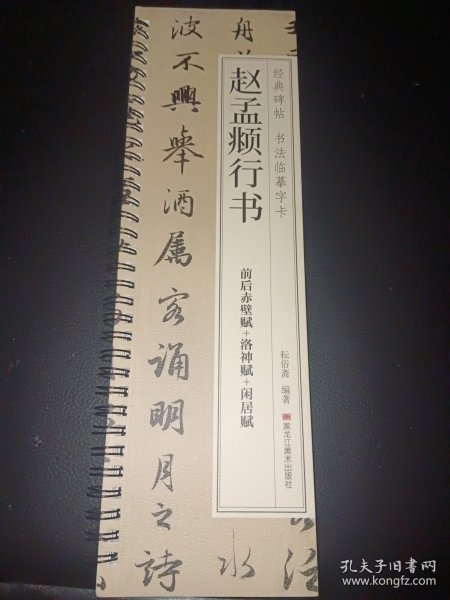 经典碑帖 书法临摹字卡
赵孟𫖯行书
前后赤壁赋+洛神赋+闲居赋
耘俗斋 编著
黑龙江美术出版社
波不興舉酒属客誦明月之詩
水
孔夫子旧书网
www.kongfz.com